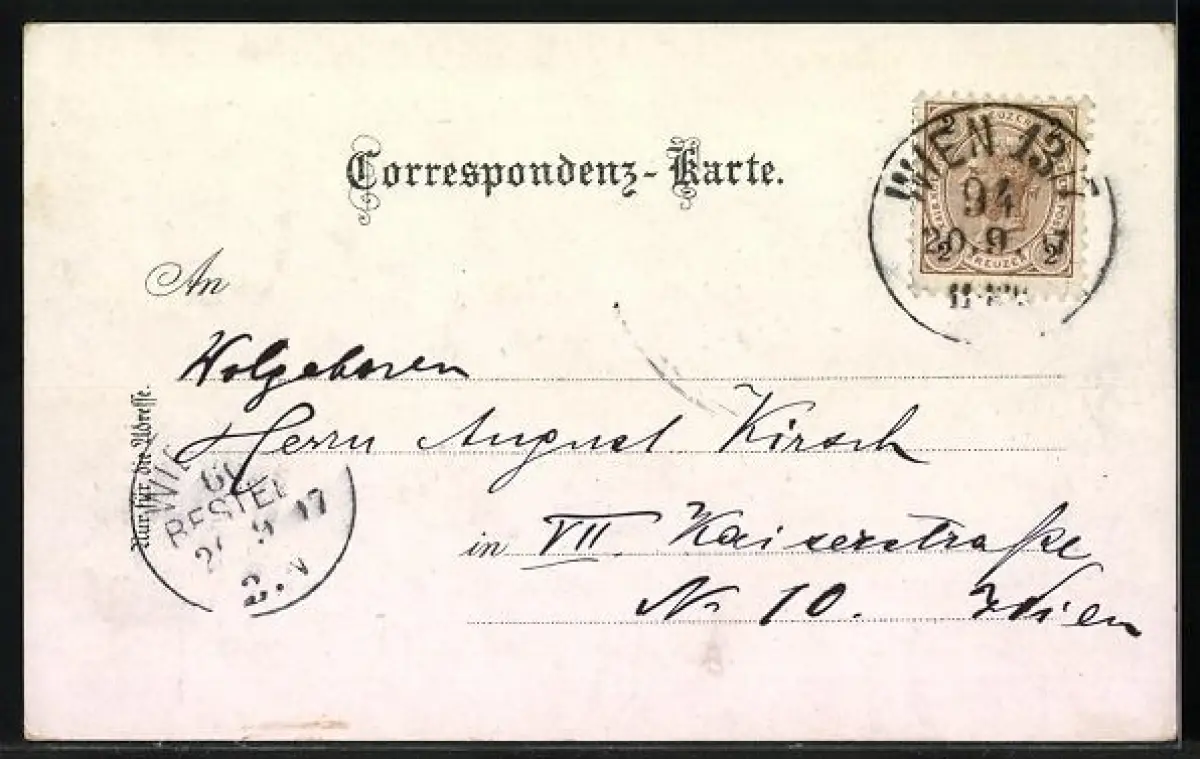 Correspondenz-Karte.
KREUZER
2 2
WIEN 13
94
20.9.97
2 2
KREUZER
An
Wolgeboren
Herrn August Kirsch
in VII. Kaiserstraße
No 10. Wien
Nur für die Adresse.
WIE
BESTEL
9 97
2.N